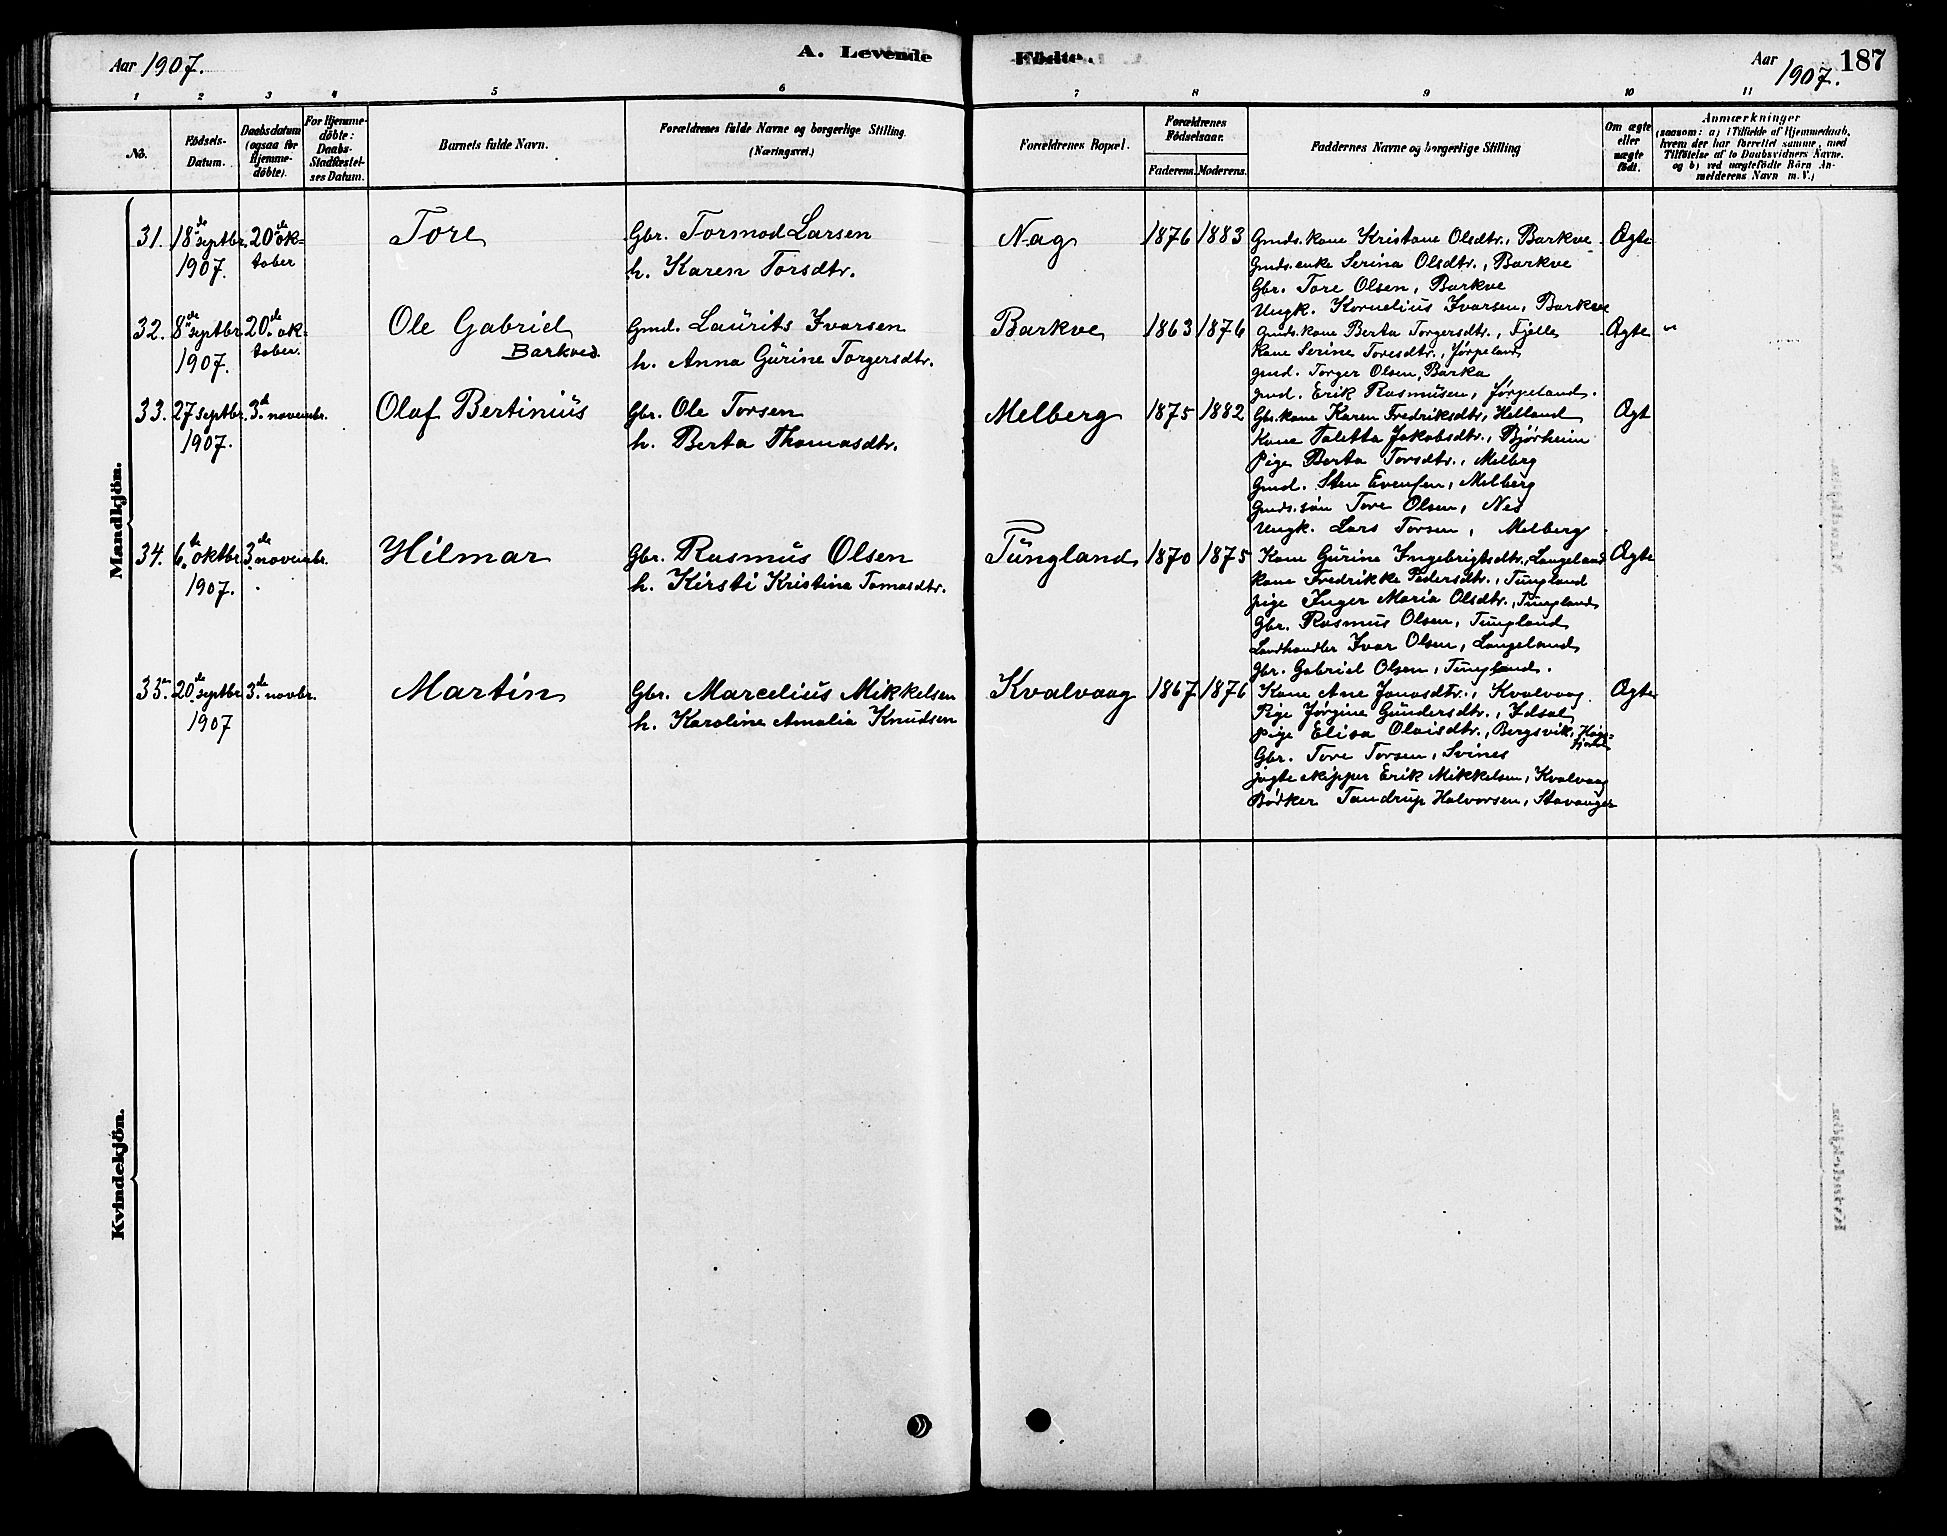 Aar 1907.
A. Levende
Födte.
Aar 1907.
187
1 2 3 4 5 6 7 8 9 10 11
No.
Födsels-Datum.
Daabsdatum (ogsaa for Hjemme-döbte).
For Hjemme-döbte: Daabs-Stadfæstel-ses Datum.
Barnets fulde Navn.
Forældrenes fulde Navne og borgerlige Stilling. (Næringsvei.)
Forældrenes Bopæl.
Forældrenes Födselsaar.
Faderens. Moderens.
Faddernes Navne og borgerlige Stilling
Om ægte eller uægte födt.
Anmærkninger
(saasom: a) i Tilfælde af Hjemmedaab, hvem der har forrettet samme, med Tilföielse af to Daabsvidners Navne, og b) ved uægtefödte Börn An-melderens Navn m. V.)
Mandkjön.
31. 18de septbr. 1907. 20de oktober
Tore
Gbr. Tormod Larsen
h. Karen Torsdtr.
Nag 1876 1883
Gmds. kone Kristane Olsdtr., Barkve
Gmds. enke Serina Olsdtr., Barkve
Gbr. Tore Olsen, Barkve
Ungk. Kornelius Ivarsen, Barkve
Ægte
32. 8de septbr. 1907. 20de oktober.
Ole Gabriel
Barkved
Gmd. Laurits Ivarsen
h. Anna Gurine Torgersdtr.
Barkve 1863 1876
Gmds. kone Berta Torgersdtr., Fjelle
Kone Serine Toresdtr., Jørpeland
Gmd. Torger Olsen, Barka
Gmd. Erik Rasmusen, Jørpeland.
Ægte "
33. 27 septbr. 1907. 3de novembr.
Olaf Bertinius
Gbr. Ole Torsen
h. Berta Thomasdtr.
Melberg 1875 1882
Gbr. kone Karen Fredriksdtr., Helland
Kone Taletta Jakobsdtr., Bjørheim
Pige Berta Torsdtr., Melberg
Gmd. Sten Evensen, Melberg
Gmds. søn Tore Olsen, Nes
Ungk. Lars Torsen, Melberg
Ægt
34. 6de oktbr. 1907. 3de novembr.
Hilmar
Gbr. Rasmus Olsen
h. Kirsti Kristina Tomasdtr.
Tungland 1870 1875
Kone Gurine Ingebrigtsdtr., Langeland
Kone Fredrikke Pedersdtr., Tungland
pige Inger Maria Olsdtr., Tungland
Gbr. Rasmus Olsen, Tungland
Landhandler Ivar Olsen, Langeland
Gbr. Gabriel Olsen, Tungland.
Ægte
35. 20de septbr. 1907 3de novbr.
Martin
Gbr. Marcelius Mikkelsen
h. Karoline Amalia Knudsen
Kvalvaag 1867 1876
Kone Ane Jonasdtr., Kvalvaag
Pige Jørgine Gundersdtr., Idsal
pige Elisa Olaisdtr., Bergsvik, Høgsfjord
Gbr. Tore Torsen, Svines
jagteskipper Erik Mikkelsen, Kvalvaag
Bødker Tandrup Halvorsen, Stavanger
Ægte
Kvindekjön.